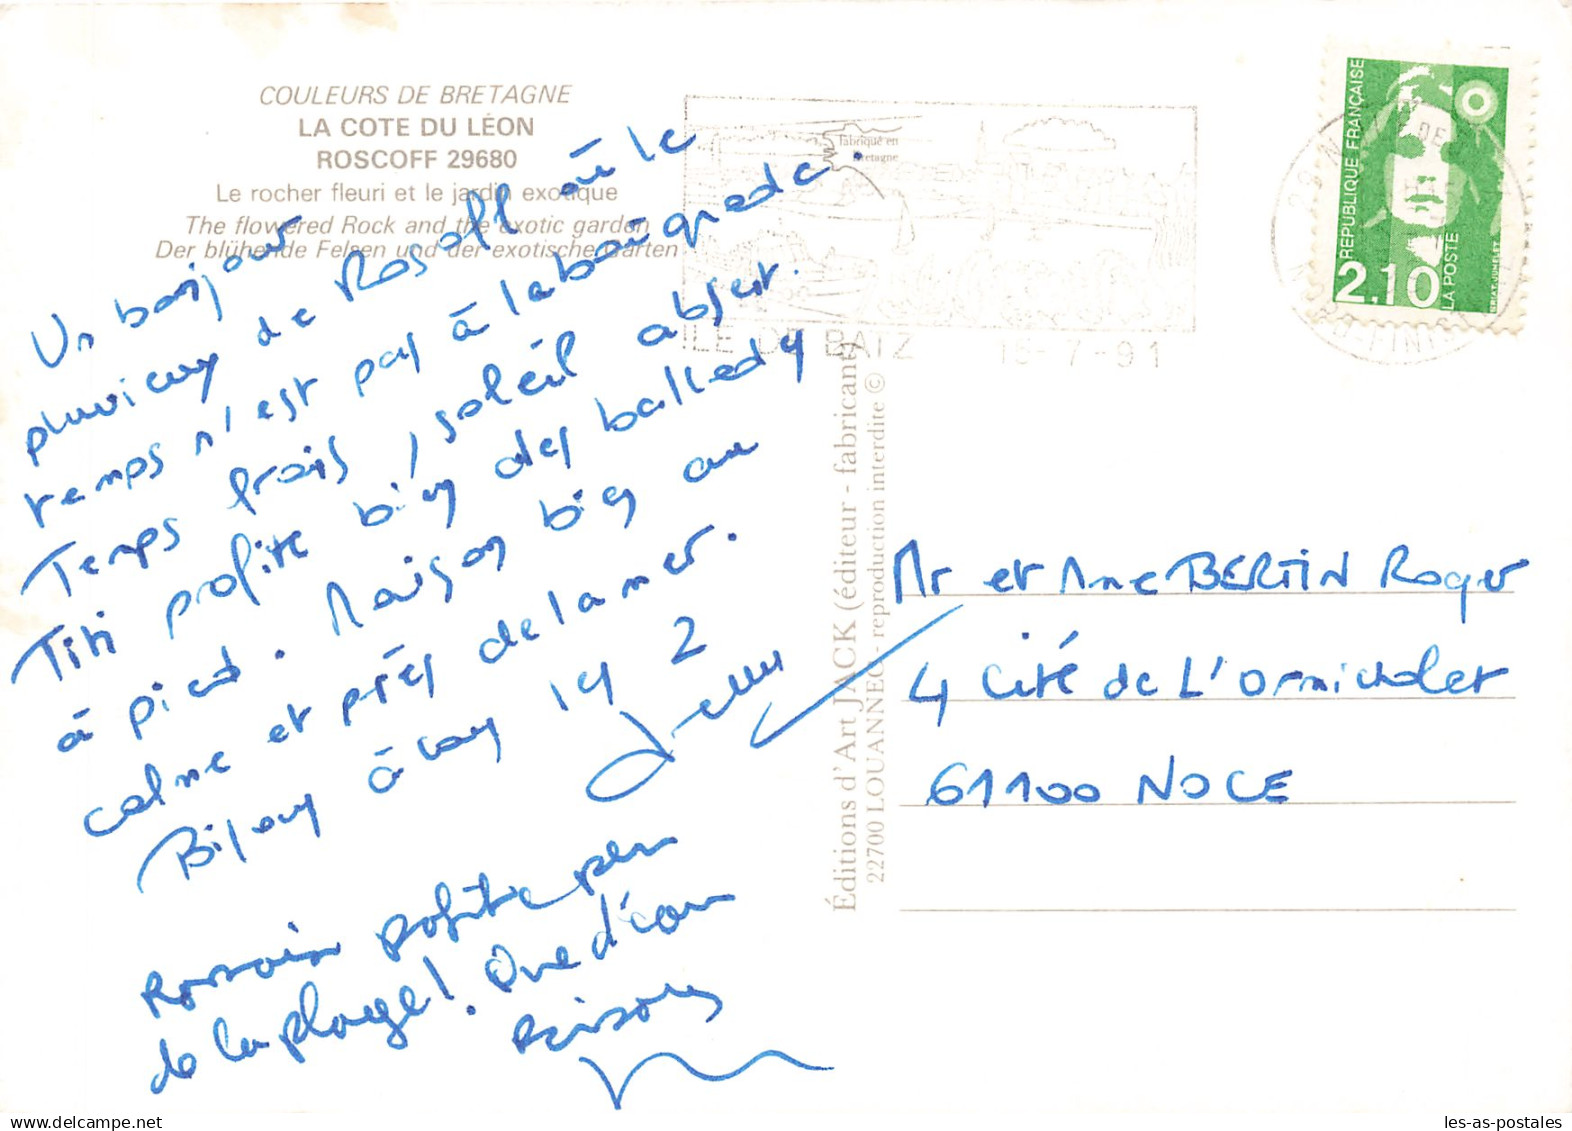 COULEURS DE BRETAGNE
LA COTE DU LÉON
ROSCOFF 29680
Le rocher fleuri et le jardin exotique
The flowered Rock and the exotic garden
Der blühende Felsen und der exotische Garten
Un bonjour
pluvieux de Roscoff où le
temps n'est pas à la baignade.
Temps frais, soleil absent.
Titi profite bien des ballades
à pied. Maison bien au
calme et près de la mer.
Bisous à vous 2
Romain profite peu
de la plage! Que d'eau
Bisous
fabriqué en
Bretagne
ILE DE BATZ 18-7-91
RÉPUBLIQUE FRANÇAISE
2,10
LA POSTE
Éditions d'Art JACK (éditeur - fabricant)
22700 LOUANNEC - reproduction interdite ©
Mr et Mme BERTIN Roger
4 Cité de L'Ormicholet
61100 NOCE
les-as-postales